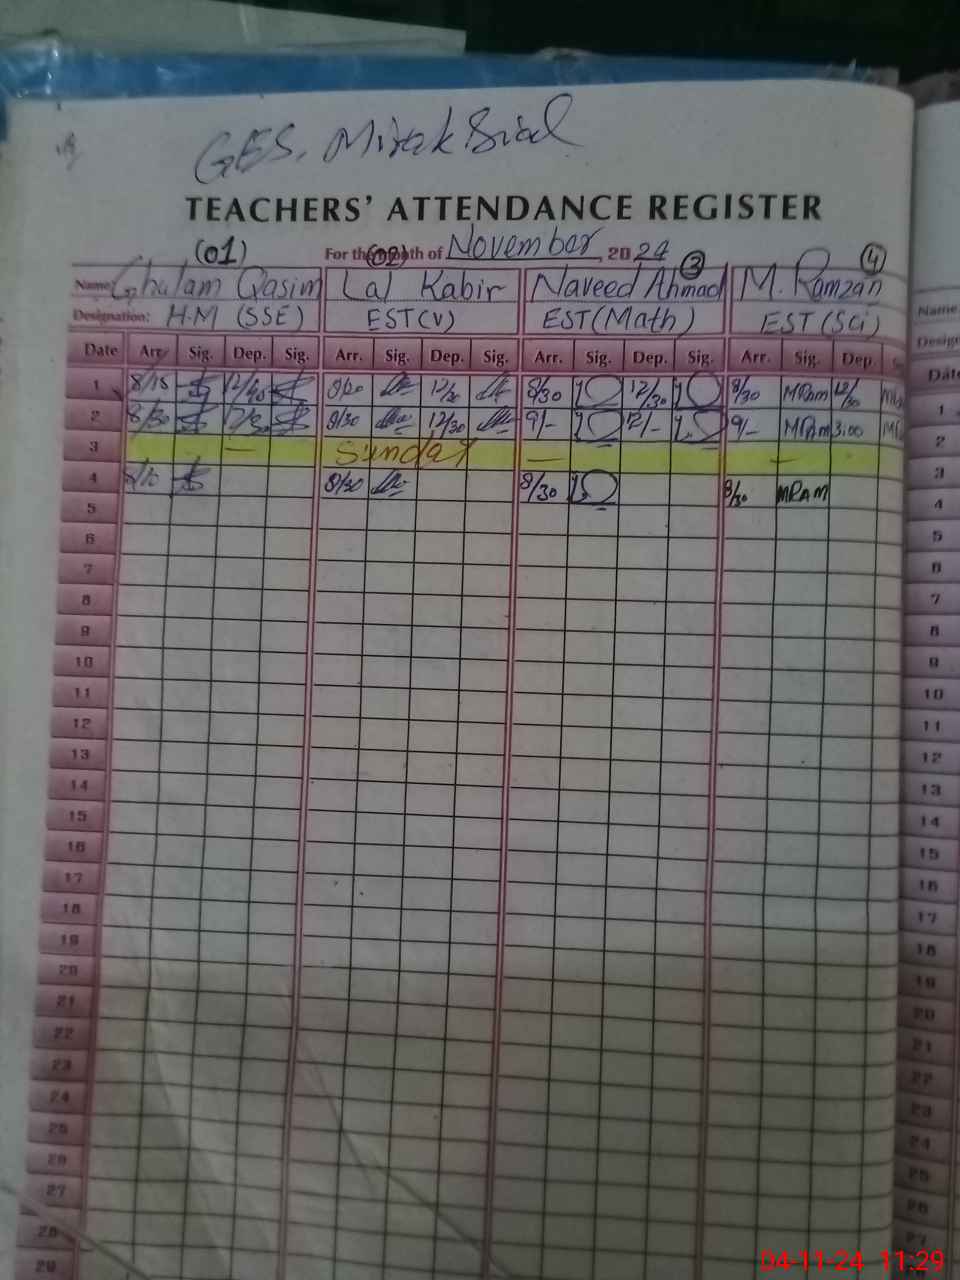 GES, Mirak Sial
TEACHERS' ATTENDANCE REGISTER
(01) For the month of November, 2024
(02) (3) (4)
Name Ghulam Qasim Lal Kabir Naveed Ahmad M. Ramzan Name
Designation: H.M (SSE) EST(V) EST(Math) EST(Sci)
Date Arr. Sig. Dep. Sig. Arr. Sig. Dep. Sig. Arr. Sig. Dep. Sig. Arr. Sig. Dep.
1 8/15 12/30 8/30 12/30 8/30 MRam 12/30 1
2 8/30 8/30 12/30 9/- 12/- 9/- MRam 3:00 2
3 — Sunday — — 3
4 8/30 8/30 8/30 MRAM 4
5 5
6 6
7 7
8 8
9 9
10 10
11 11
12 12
13 13
14 14
15 15
16 16
17 17
18 18
19 19
20 20
21 21
22 22
23 23
24 24
25 25
26 26
27 27
28
29
04-11-24 11:29